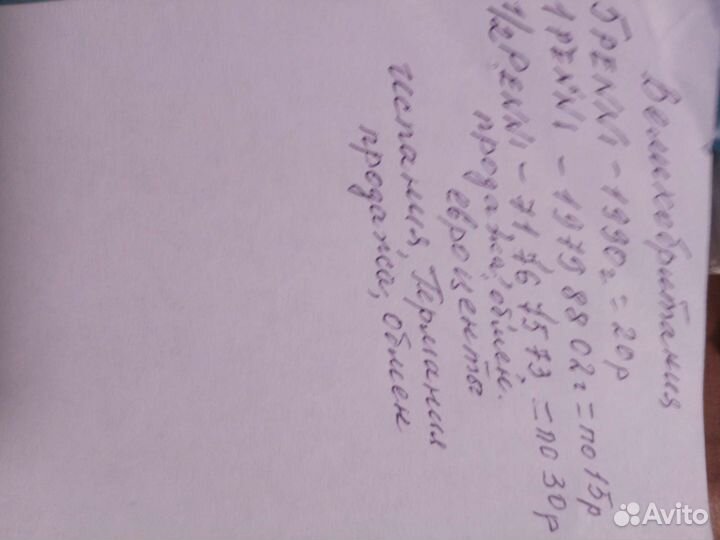 Великобритания
5 PENNI - 1990г = 20р
1 PENNI - 1979 88 02г = по 15р
1/2 PENNI - 71 76 75 73 = по 30р
продажа, обмен.
евроценты
испания, Германия
продажа, обмен
Avito